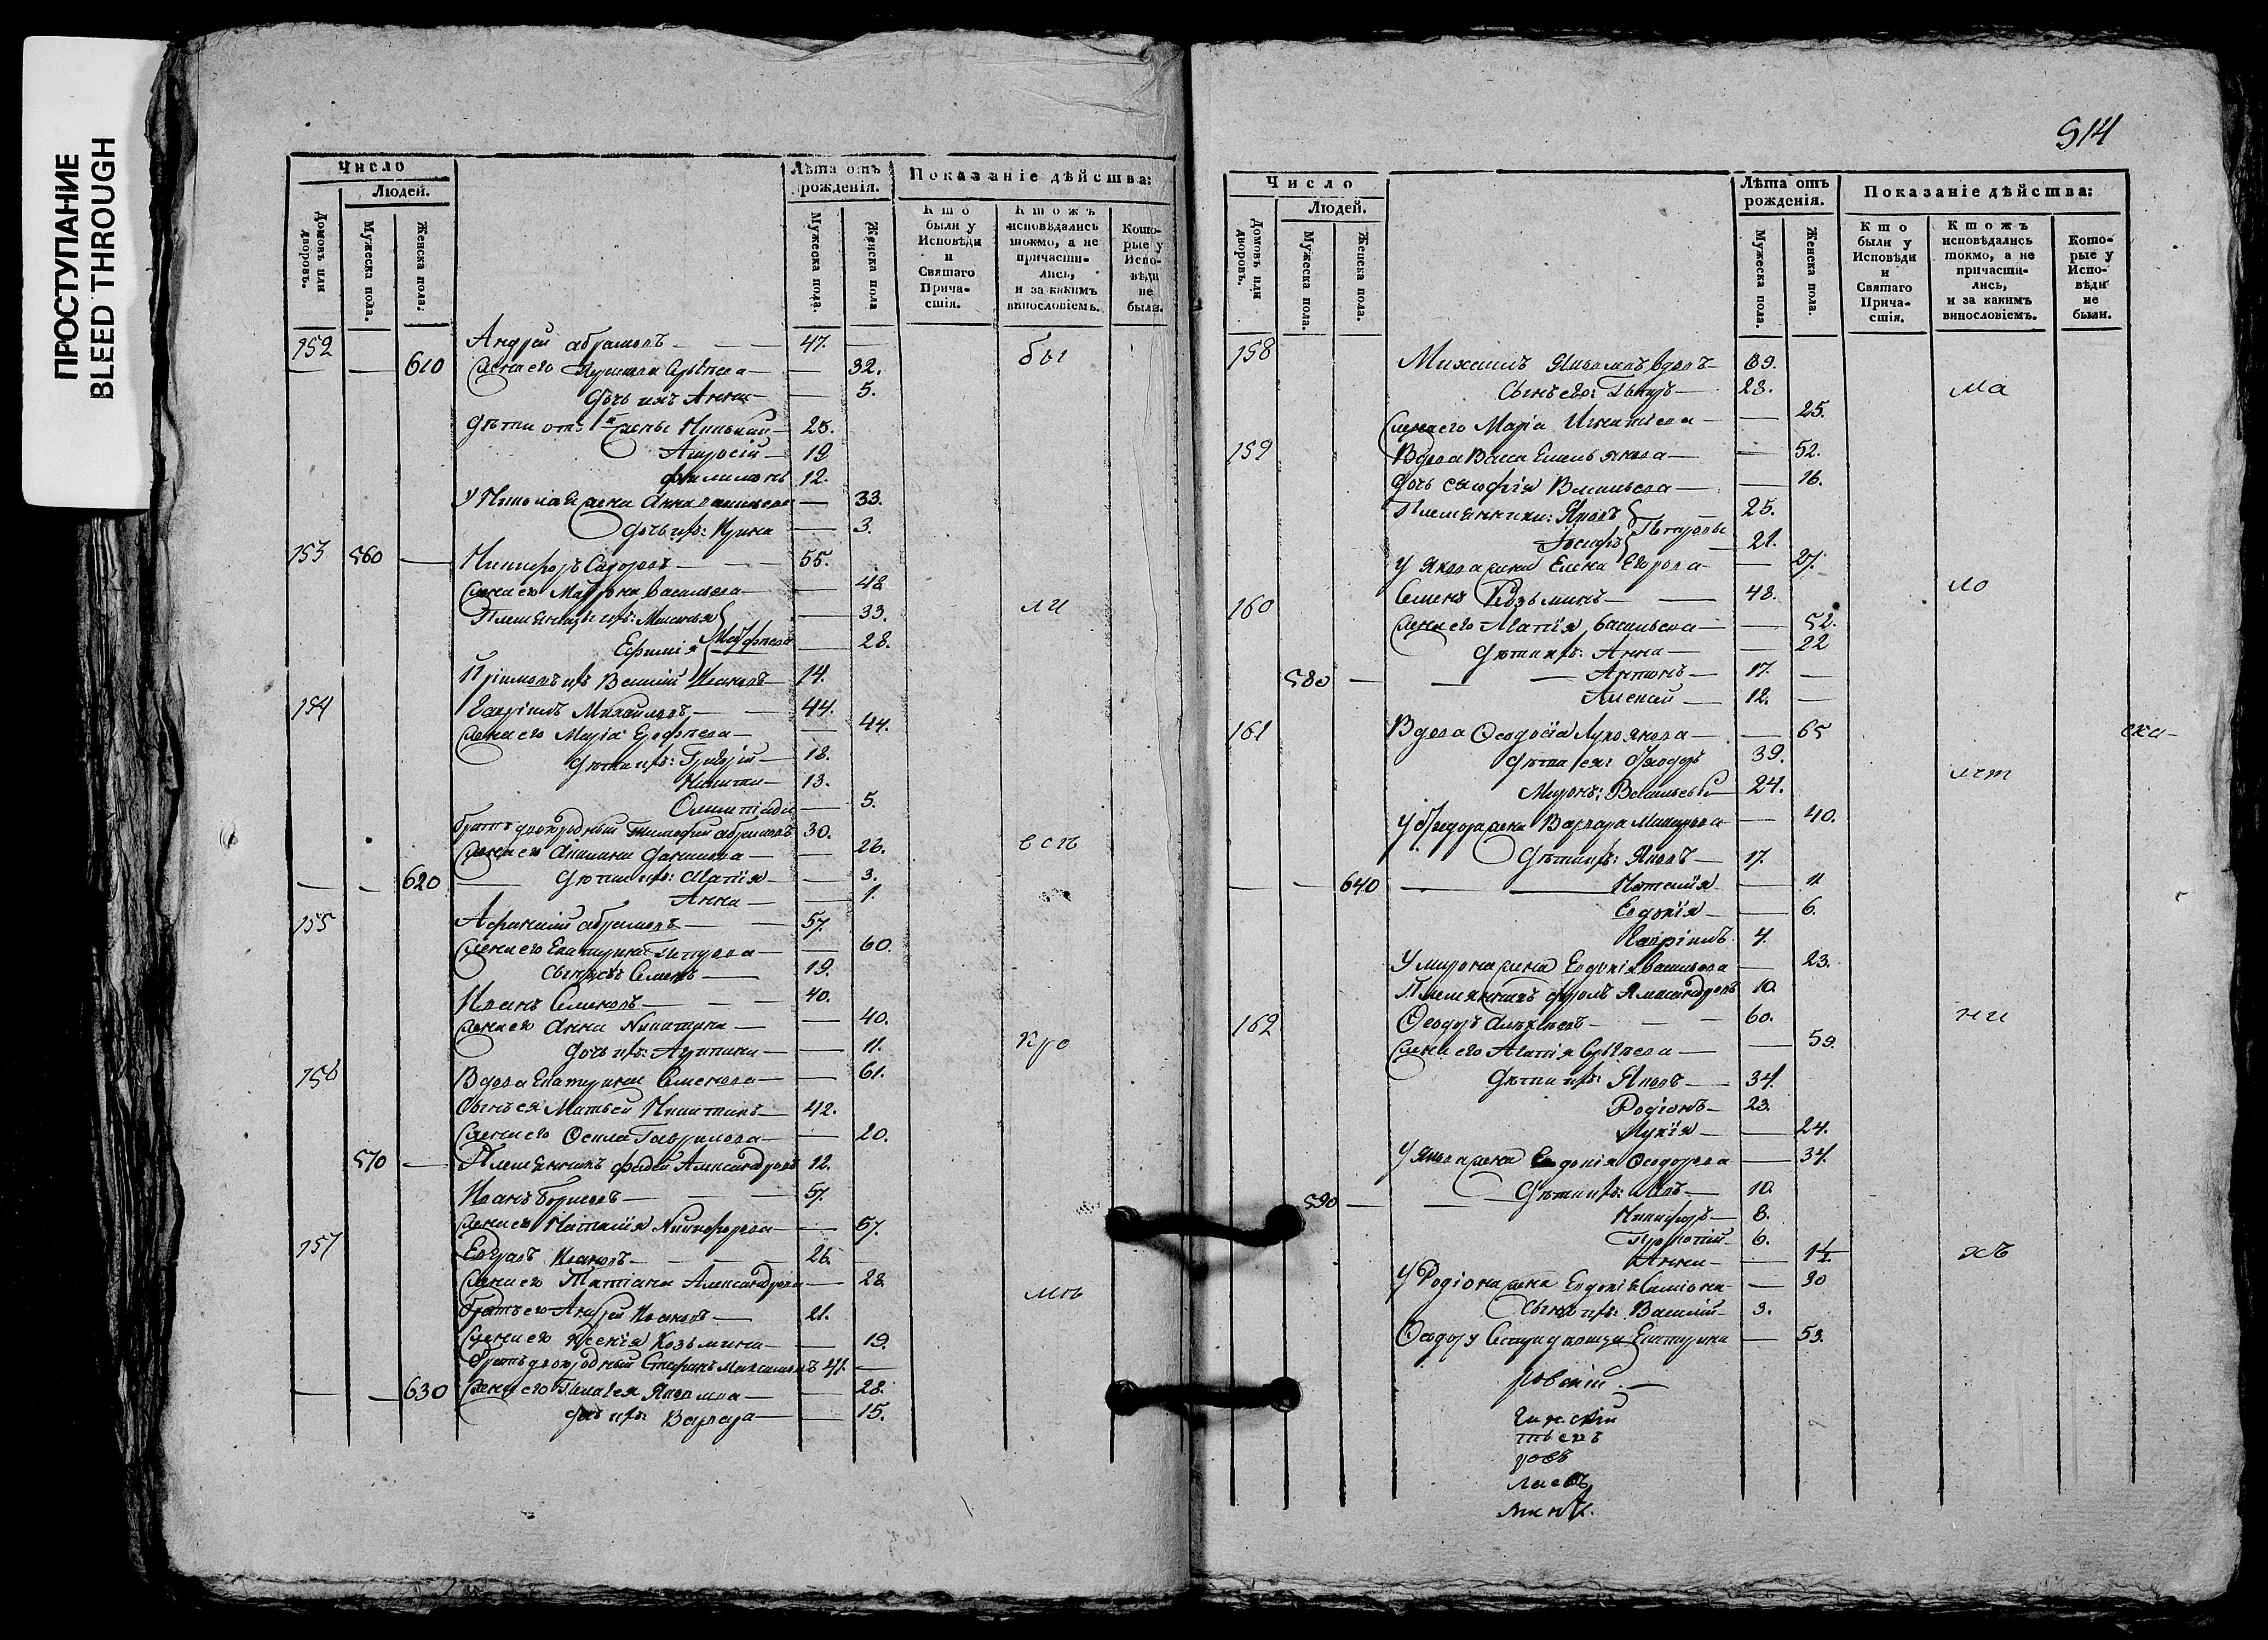 ПРОСТУПАНИЕ
BLEED THROUGH
Число
Людей.
Домовъ или дворовъ.
Мужеска пола.
Женска пола.
Лѣта отъ рожденія.
Мужеска пола.
Женска пола
Показаніе дѣйства:
Кто были у Исповѣди и Святаго Прича-стія.
Ктожъ исповѣдались токмо, а не причасти-лись, и за какимъ винословіемъ.
Кото-рые у Испо-вѣди не были.
152 Андрей Абрамовъ 47.
610 Жена его Сергѣева 32. бы
Дочь ихъ Анна 5.
Дѣти отъ 1й жены Николай 25.
19
Филимонъ 12.
У Николая жена Анна 33.
Дочь ихъ: Ирина 3.
153 560 Никифоръ Сидоровъ 55.
Жена его Матрона Васильева 48
Племянницы ихъ: Меланья 33. ли
Ефимія 28.
ихъ Василій Ивановъ 14.
154 Гавріилъ Михайловъ 44.
Жена его Марія Ерофеева 44.
Дѣти ихъ: Григорій 18.
Никита 13.
Олимпіада 5.
Братъ двоюродный Тимофей Абрамовъ 30.
Жена его 26. всѣ
620 Дѣти ихъ: Агапія 3.
Анна 1.
155 Афанасій Абрамовъ 57.
Жена его Екатерина Петрова 60.
Сынъ ихъ Семенъ 19.
Иванъ Семеновъ 40.
Жена его Анна Никитина 40.
Дочь ихъ: Агрипина 11. кро
156 Вдова Екатерина Семенова 61.
Сынъ ея Матвей Никитинъ 42.
Жена его Гаврилова 20.
570 Племянникъ Фадей Александровъ 12.
Иванъ Борисовъ 57.
Жена его Наталія Никифорова 57.
157 Ивановъ 26.
Жена его Татіана Александрова 28
Братъ его Андрей Ивановъ 21. мѣ
Жена его Ксенія Козьмина 19.
Братъ двоюродный Стефанъ 41.
630 Жена его Пелагея Яковлева 28.
Дочь ихъ Варвара 15.
914
Число
Людей.
Домовъ или дворовъ.
Мужеска пола.
Женска пола.
Лѣта отъ рожденія.
Мужеска пола.
Женска пола.
Показаніе дѣйства:
Кто были у Исповѣди и Святаго Прича-стія.
Ктожъ исповѣдались токмо, а не причасти-лись, и за какимъ винословіемъ.
Кото-рые у Испо-вѣди не были.
158 Михаилъ Яковлевъ вдовъ 69.
Сынъ его: Петръ 28. ма
Жена его Марія Игнатіева 25.
159 Вдова Васса Емельянова 52.
Дочь ея Софія Васильева 16.
Племянники: Яковъ 25.
Іосифъ Петровы 21.
У Якова жена Елена Егорова 27.
160 Семенъ Козьминъ 48. ло
Жена его Агапія Васильева 52.
Дѣти ихъ: Анна 22
580 Антонъ 17.
Алексей 12.
161 Вдова Ѳеодосія Лукоянова 65 ска-
Дѣти ея: Ѳеодоръ 39.
Миронъ: Васильевы 24. лѣт
У Ѳедора жена Варвара Макарова 40.
Дѣти ихъ: Яковъ 17.
640 Наталія 11
Евдокія 6.
Гавріилъ 4.
У Мирона жена Евдокія Васильева 23.
Племянникъ Фролъ Александровъ 10.
162 Ѳеодоръ Алексѣевъ 60. ни
Жена его Агапія Сергѣева 59.
Дѣти ихъ: Яковъ 34.
Родіонъ 23.
Лукія 24.
У Якова жена Евдокія Ѳеодорова 34.
590 Дѣти ихъ: Іовъ 10.
Никифоръ 8.
Прокопій 6.
Анна 1½ хъ
У Родіона жена Евдокія 30
Сынъ ихъ: Василій 3.
Ѳеодору Екатерина 53.